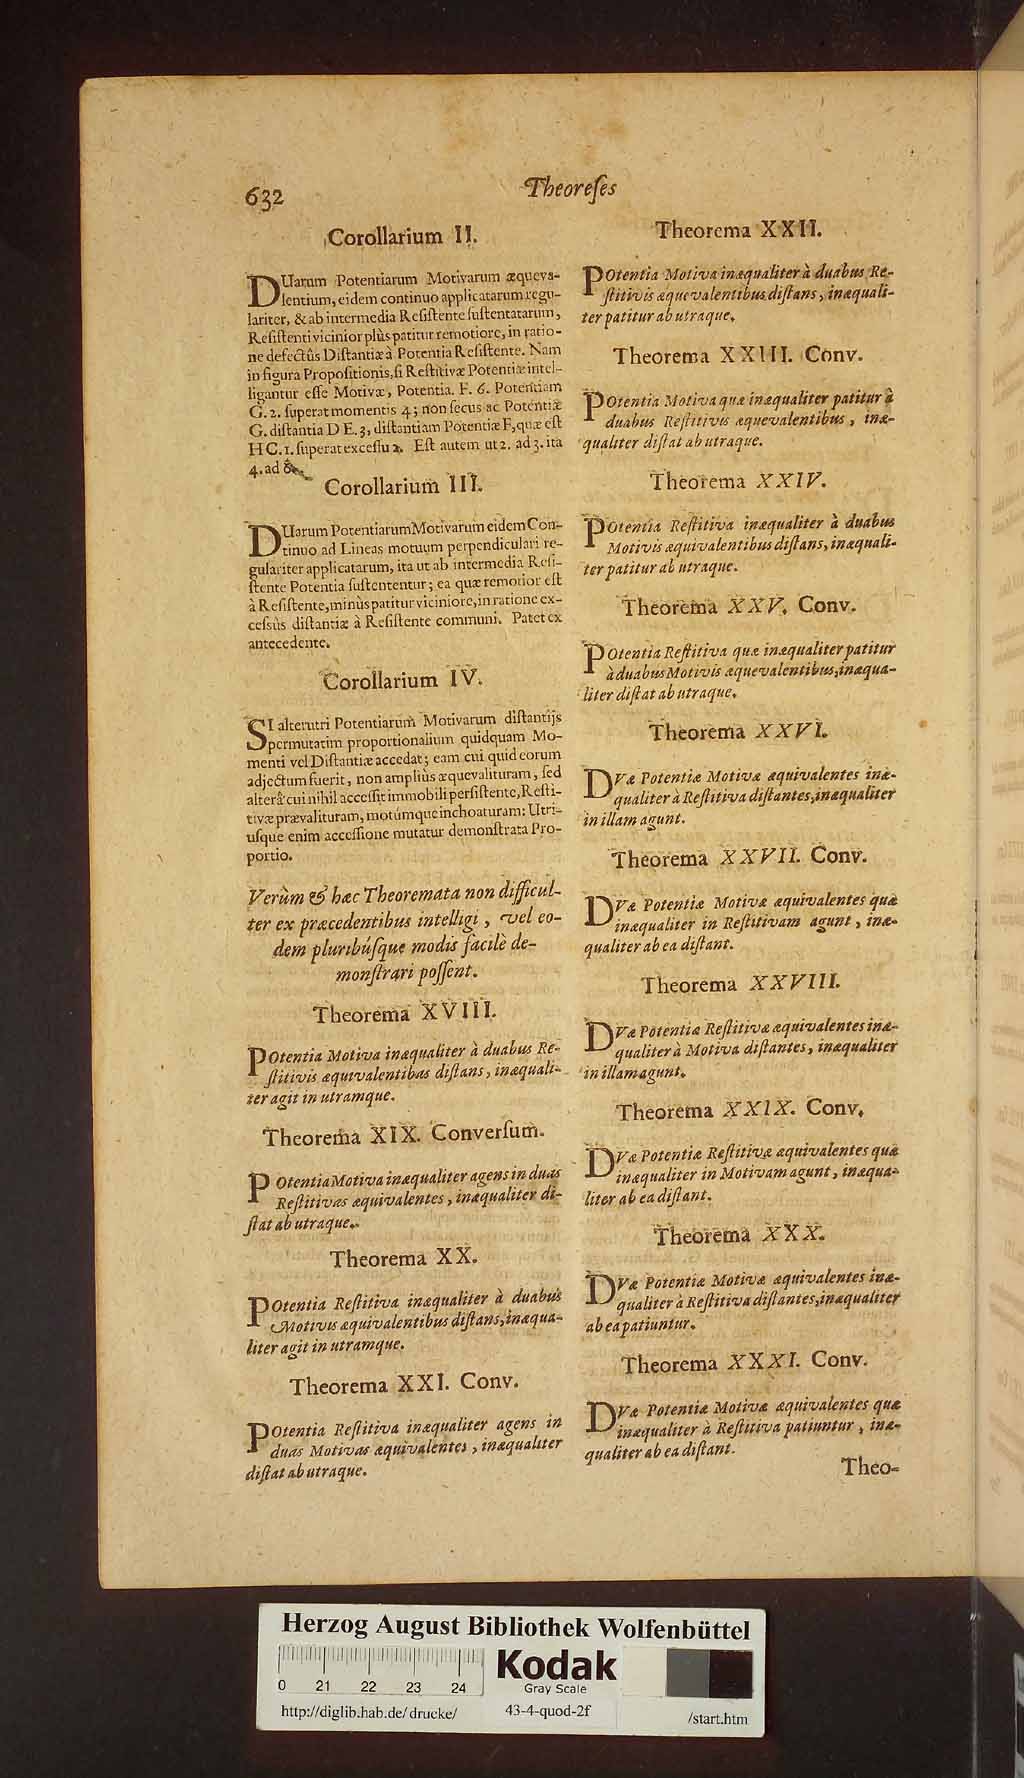 632
Theoreſes
Corollarium II.
DUarum Potentiarum Motivarum æqueva-
lentium, eidem continuo applicatarum regu-
lariter, & ab intermedia Reſiſtente ſuſtentatarum,
Reſiſtenti vicinior plùs patitur remotiore, in ratio-
ne defectûs Diſtantiæ à Potentia Reſiſtente. Nam
in figura Propoſitionis, ſi Reſtitivæ Potentiæ intel-
ligantur eſſe Motivæ, Potentia. F. 6. Potentiam
G. 2. ſuperat momentis 4; non ſecus ac Potentiæ
G. diſtantia D E. 3, diſtantiam Potentiæ F, quæ eſt
H C. 1. ſuperat exceſſu 2. Eſt autem ut 2. ad 3. ita
4. ad
Corollarium III.
DUarum Potentiarum Motivarum eidem Con-
tinuo ad Lineas motuum perpendiculari re-
gulariter applicatarum, ita ut ab intermedia Reſi-
ſtente Potentia ſuſtententur; ea quæ remotior eſt
à Reſiſtente, minùs patitur viciniore, in ratione ex-
ceſsûs diſtantiæ à Reſiſtente communi. Patet ex
antecedente.
Corollarium IV.
SI alterutri Potentiarum Motivarum diſtantijs
permutatim proportionalium quidquam Mo-
menti vel Diſtantiæ accedat; eam cui quid eorum
adjectum fuerit, non ampliùs æquevalituram, ſed
alterâ cui nihil acceſſit immobili perſiſtente, Reſti-
tivæ prævalituram, motúmque inchoaturam: Utri-
uſque enim acceſſione mutatur demonſtrata Pro-
portio.
Verùm & hæc Theoremata non difficul-
ter ex præcedentibus intelligi, vel eo-
dem pluribúſque modis facilè de-
monſtrari poſſent.
Theorema XVIII.
POtentia Motiva inæqualiter à duabus Re-
ſtitivis æquivalentibus diſtans, inæquali-
ter agit in utramque.
Theorema XIX. Converſum.
POtentia Motiva inæqualiter agens in duas
Reſtitivas æquivalentes, inæqualiter di-
ſtat ab utraque.
Theorema XX.
POtentia Reſtitiva inæqualiter à duabus
Motivis æquivalentibus diſtans, inæqua-
liter agit in utramque.
Theorema XXI. Conv.
POtentia Reſtitiva inæqualiter agens in
duas Motivas æquivalentes, inæqualiter
diſtat ab utraque.
Theorema XXII.
POtentia Motiva inæqualiter à duabus Re-
ſtitivis æquevalentibus diſtans, inæquali-
ter patitur ab utraque.
Theorema XXIII. Conv.
POtentia Motiva quæ inæqualiter patitur à
duabus Reſtitivis æquevalentibus, inæ-
qualiter diſtat ab utraque.
Theorema XXIV.
POtentia Reſtitiva inæqualiter à duabus
Motivis æquivalentibus diſtans, inæquali-
ter patitur ab utraque.
Theorema XXV. Conv.
POtentia Reſtitiva quæ inæqualiter patitur
à duabus Motivis æquevalentibus, inæqua-
liter diſtat ab utraque.
Theorema XXVI.
DVæ Potentiæ Motivæ æquivalentes inæ-
qualiter à Reſtitiva diſtantes, inæqualiter
in illam agunt.
Theorema XXVII. Conv.
DVæ Potentiæ Motivæ æquivalentes quæ
inæqualiter in Reſtitivam agunt, inæ-
qualiter ab ea diſtant.
Theorema XXVIII.
DVæ Potentiæ Reſtitivæ æquivalentes inæ-
qualiter à Motiva diſtantes, inæqualiter
in illam agunt.
Theorema XXIX. Conv.
DVæ Potentiæ Reſtitivæ æquivalentes quæ
inæqualiter in Motivam agunt, inæqua-
liter ab ea diſtant.
Theorema XXX.
DVæ Potentiæ Motivæ æquivalentes inæ-
qualiter à Reſtitiva diſtantes, inæqualiter
ab ea patiuntur.
Theorema XXXI. Conv.
DVæ Potentiæ Motivæ æquivalentes quæ
inæqualiter à Reſtitiva patiuntur, inæ-
qualiter ab ea diſtant.
Theo-
Herzog August Bibliothek Wolfenbüttel
0 21 22 23 24
Kodak
Gray Scale
http://diglib.hab.de/drucke/
43-4-quod-2f
/start.htm